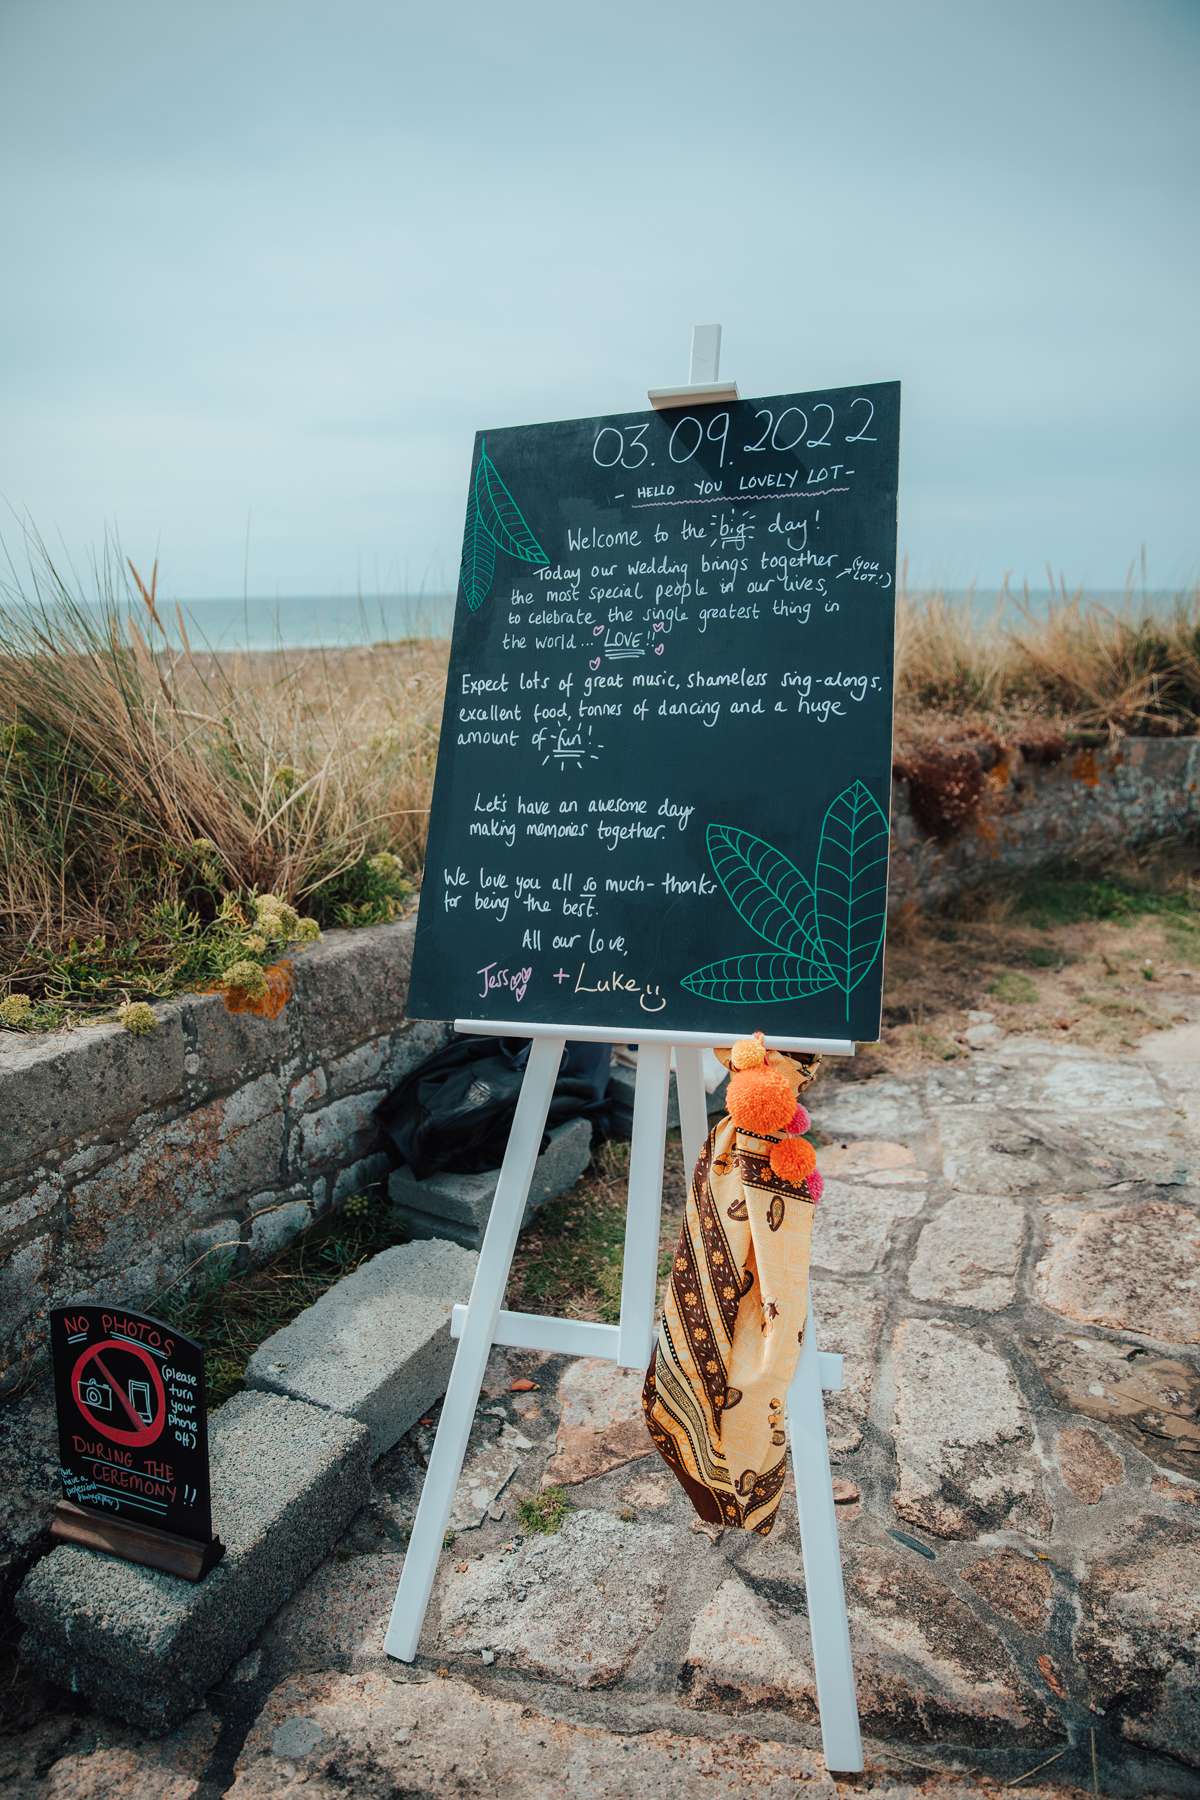 03.09.2022
- HELLO YOU LOVELY LOT -
Welcome to the big day!
Today our wedding brings together
the most special people in our lives, (YOU LOT!)
to celebrate the single greatest thing in
the world... LOVE!!
Expect lots of great music, shameless sing-alongs,
excellent food, tonnes of dancing and a huge
amount of fun!
Let's have an awesome day
making memories together.
We love you all so much - thanks
for being the best.
All our love,
Jess + Luke
NO PHOTOS
(please
turn
your
phone
off)
DURING THE
CEREMONY!!
We
have a